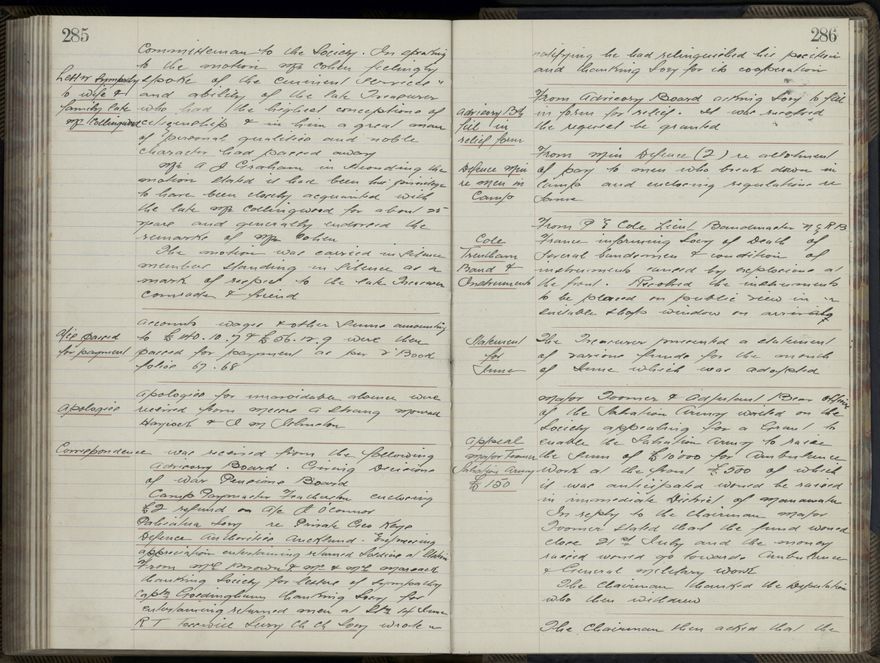 285
Committeeman to the Society. In speaking
to the motion Mr Cohen feelingly
Letter Sympathy
to wife &
family late
Mr Collingwood
spoke of the eminent services
and ability of the late Treasurer
who had the highest conceptions of
citizenship & in him a great man
of personal qualities and noble
character had passed away
Mr A J Graham in seconding the
motion stated it had been his privilege
to have been closely acquainted with
the late Mr Collingwood for about 25
years and generally endorsed the
remarks of Mr Cohen
The motion was carried in silence
members standing in silence as a
mark of respect to the late Treasurer
comrade & friend
A/cs passed
for payment
Accounts wages & other sums amounting
to £140.10.7 & £56.12.9 were then
passed for payment as per Book
folios 67. 68
Apologies
Apologies for unavoidable absence were
received from Messrs A Strang
Haycock & J M Johnston
Correspondence was received from the following
Advisory Board. Giving Decisions
of War Pensions Board
Camp Paymaster Featherston enclosing
£2 refund on a/c J O'Connor
Pahiatua Socy re Private Geo Kaye
Defence Authorities Auckland. Expressing
appreciation entertaining returned Soldiers at Station
From Mrs Brown & Mr & Mrs
thanking Society for letters of sympathy
Capt thanking Socy for
entertaining returned men at Stn 14 June
R T Secry Ch Ch Socy wrote
286
notifying he had relinquished his position
and thanking Socy for its cooperation
Advisory Bd
fill in
relief form
From Advisory Board asking Socy to fill
in form for relief. It was resolved
the request be granted
Defence Min
re men in
Camp
From Min Defence (2) re allotment
of pay to men who break down in
Camp and enclosing regulations re
same
Cole
Trentham
Band &
Instruments
From Cole Lieut Bandmaster N Z R B
France informing Socy of Death of
several bandsmen & condition of
instruments caused by explosions at
the front. Resolved the instruments
to be placed on public view in a
suitable shop window on arrival
Statement
for
June
The Treasurer presented a statement
of various funds for the month
of June which was adopted
Appeal
Major Toomer
Salvation Army
£150
Major Toomer & Adjutant Bear
of the Salvation Army waited on the
Society appealing for a Grant to
enable the Salvation Army to raise
the sum of £10000 for Ambulance
work at the front £500 of which
it was anticipated would be raised
in immediate District of Manawatu
In reply to the Chairman Major
Toomer stated that the fund would
close 21st July and the money
raised would go towards Ambulance
& General Military Work
The Chairman thanked the Deputation
who then withdrew
The Chairman then asked that the